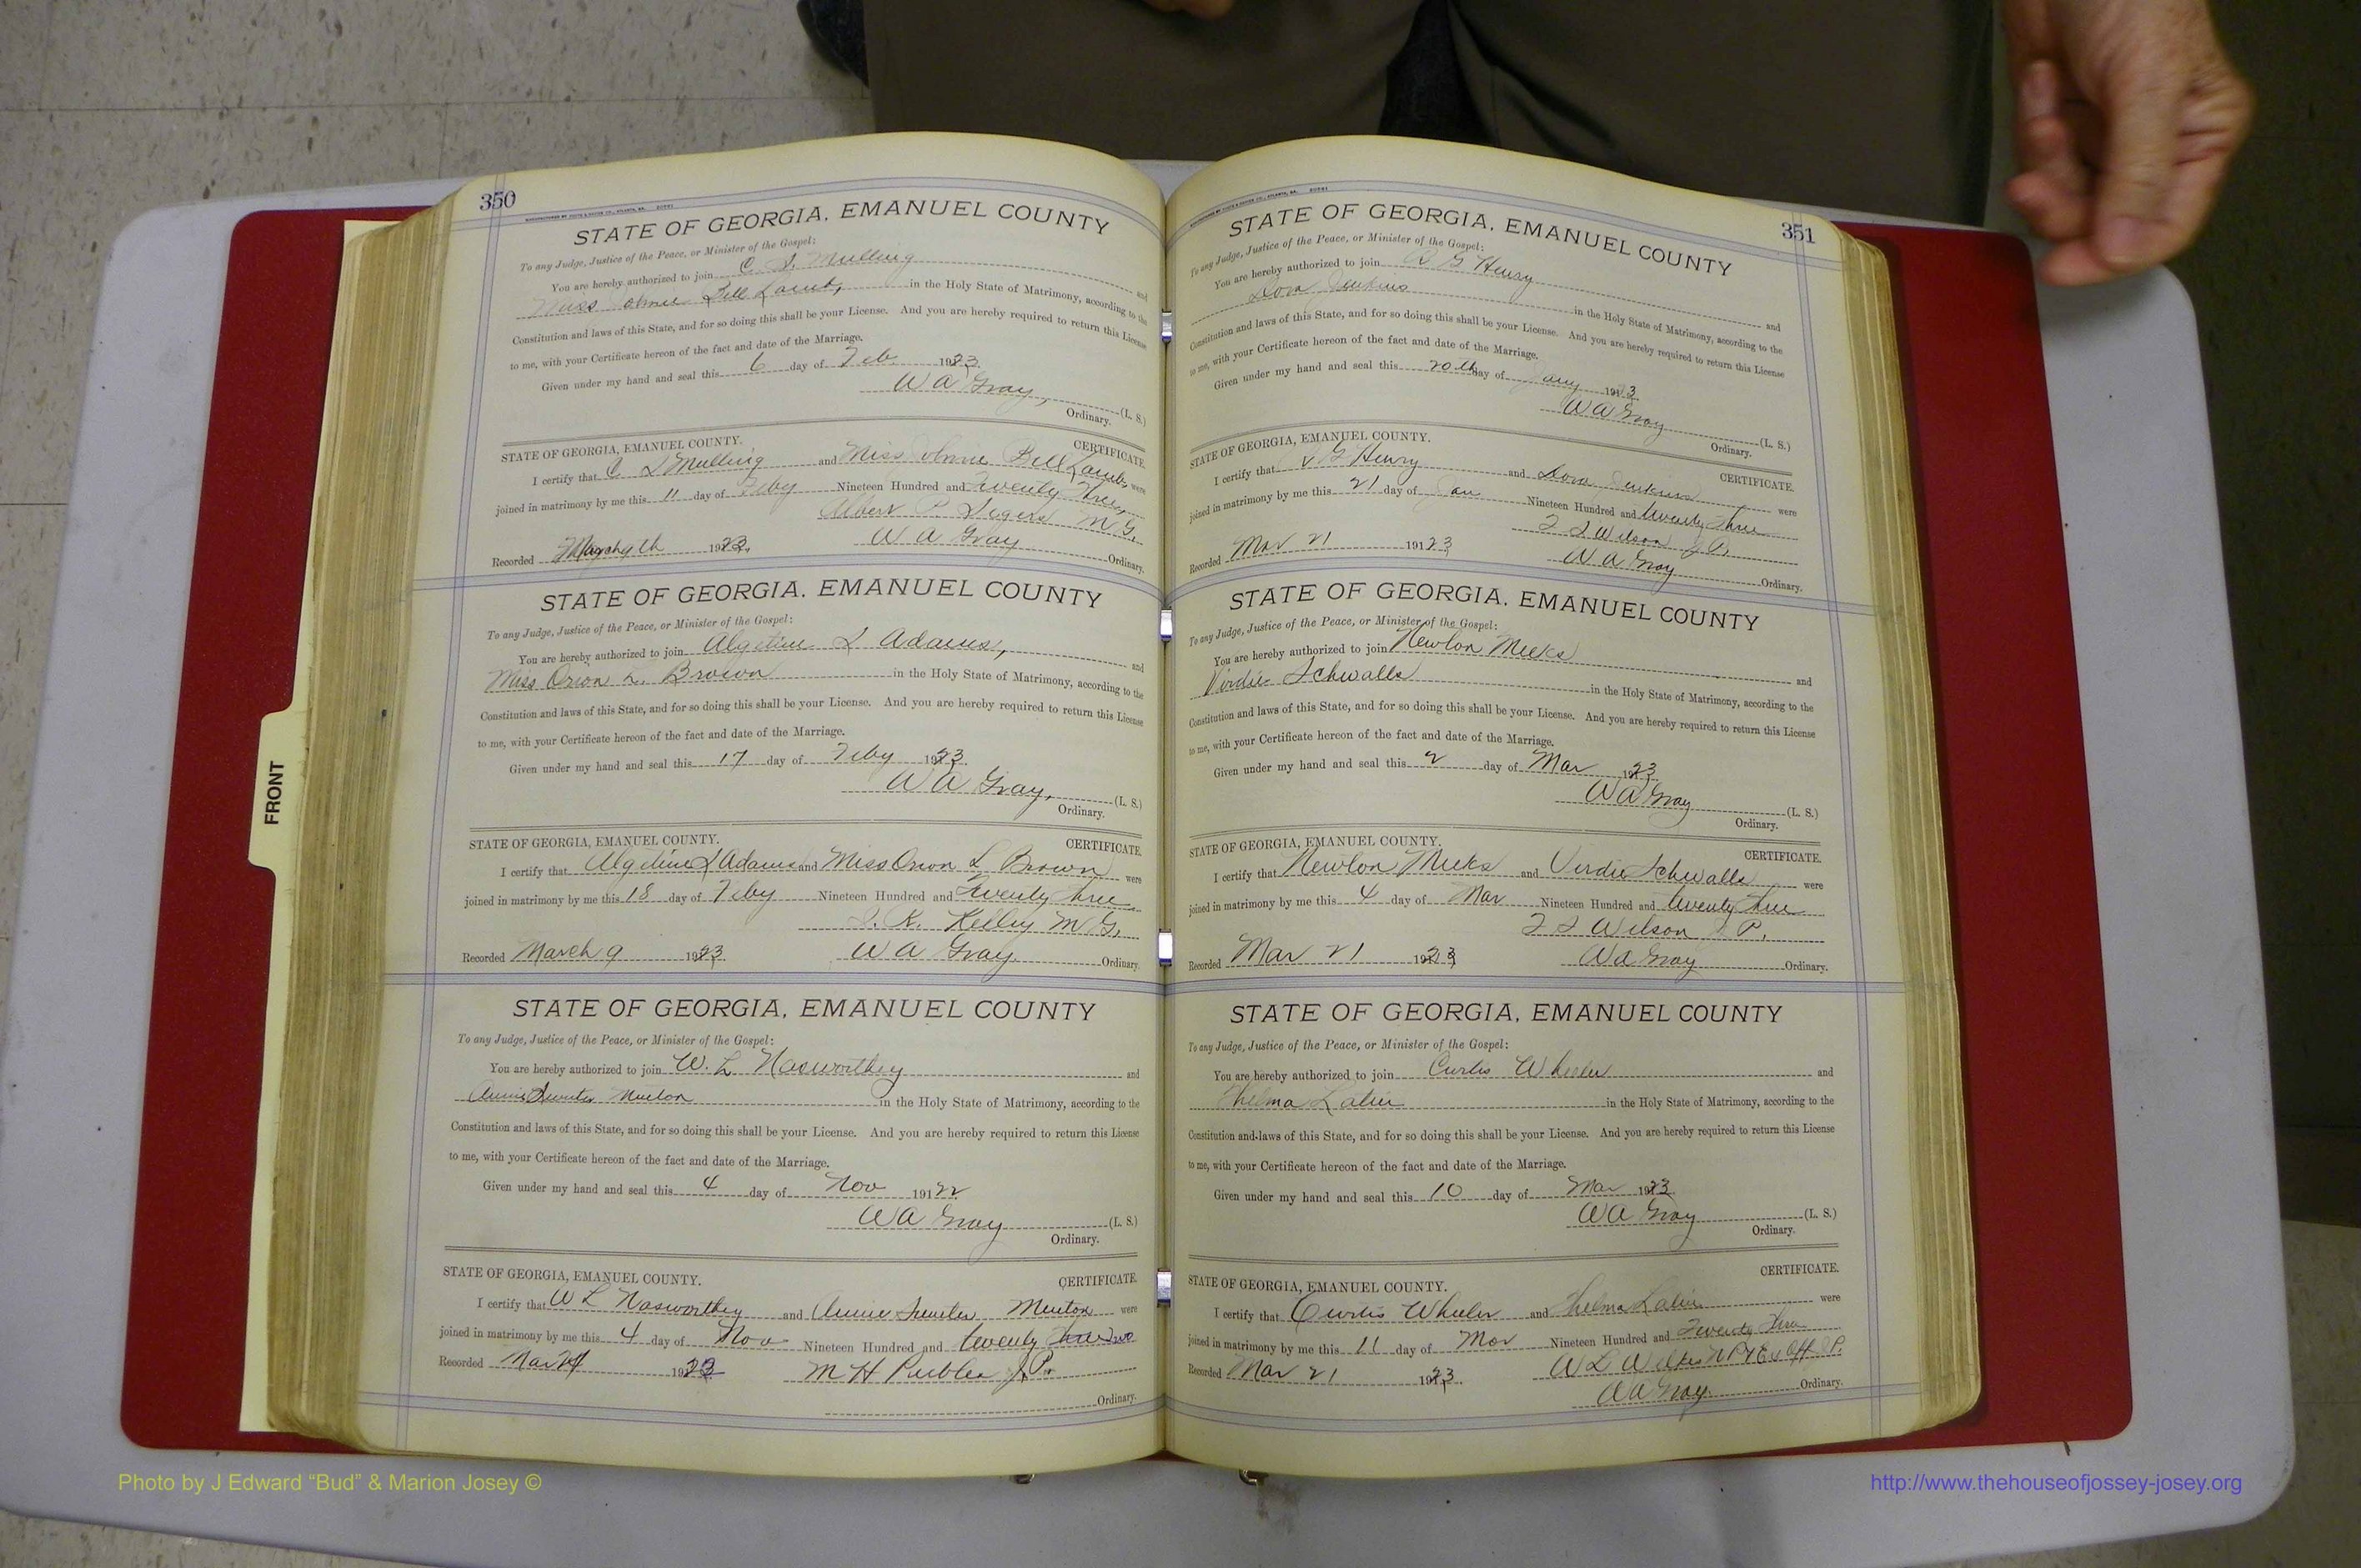 350
STATE OF GEORGIA. EMANUEL COUNTY
To any Judge, Justice of the Peace, or Minister of the Gospel:
You are hereby authorized to join C. S. Mulling and
Miss Johnie Bell Lamb, in the Holy State of Matrimony, according to the
Constitution and laws of this State, and for so doing this shall be your License. And you are hereby required to return this License
to me, with your Certificate hereon of the fact and date of the Marriage.
Given under my hand and seal this 6 day of Feb. 1923.
W A Gray, (L. S.)
Ordinary.
STATE OF GEORGIA, EMANUEL COUNTY. CERTIFICATE.
I certify that C S Mulling and Miss Johnie Bell Lamb, were
joined in matrimony by me this 11 day of Feby Nineteen Hundred and Twenty Three,
Albert P. Segers M G.
Recorded March 9th 1923. W A Gray Ordinary.
STATE OF GEORGIA. EMANUEL COUNTY
To any Judge, Justice of the Peace, or Minister of the Gospel:
You are hereby authorized to join Algetine L Adams, and
Miss Orion L. Brown in the Holy State of Matrimony, according to the
Constitution and laws of this State, and for so doing this shall be your License. And you are hereby required to return this License
to me, with your Certificate hereon of the fact and date of the Marriage.
Given under my hand and seal this 17 day of Feby 1923.
W A Gray, (L. S.)
Ordinary.
STATE OF GEORGIA, EMANUEL COUNTY. CERTIFICATE.
I certify that Algetine L Adams and Miss Orion L Brown were
joined in matrimony by me this 18 day of Feby Nineteen Hundred and Twenty three
R. Kelley M G.
Recorded March 9 1923 W A Gray. Ordinary.
STATE OF GEORGIA, EMANUEL COUNTY
To any Judge, Justice of the Peace, or Minister of the Gospel:
You are hereby authorized to join W. L Nasworthey and
Annie Minton in the Holy State of Matrimony, according to the
Constitution and laws of this State, and for so doing this shall be your License. And you are hereby required to return this License
to me, with your Certificate hereon of the fact and date of the Marriage.
Given under my hand and seal this 4 day of Nov 19122
W A Gray (L. S.)
Ordinary.
STATE OF GEORGIA, EMANUEL COUNTY. CERTIFICATE.
I certify that W L Nasworthey and Annie Minton were
joined in matrimony by me this 4 day of Nov Nineteen Hundred and twenty two
Recorded Mar 1923 M H Peebles J. P.
Ordinary.
351
STATE OF GEORGIA, EMANUEL COUNTY
To any Judge, Justice of the Peace, or Minister of the Gospel:
You are hereby authorized to join G Henry and
Dora Jenkins in the Holy State of Matrimony, according to the
Constitution and laws of this State, and for so doing this shall be your License. And you are hereby required to return this License
to me, with your Certificate hereon of the fact and date of the Marriage.
Given under my hand and seal this 20th day of Jany 1923
W A Gray (L. S.)
Ordinary.
STATE OF GEORGIA, EMANUEL COUNTY. CERTIFICATE.
I certify that G Henry and Dora Jenkins were
joined in matrimony by me this 21 day of Jan Nineteen Hundred and twenty three
Wilson J P.
Recorded Mar 21 19123 W A Gray Ordinary.
STATE OF GEORGIA. EMANUEL COUNTY
To any Judge, Justice of the Peace, or Minister of the Gospel:
You are hereby authorized to join Newton Meeks and
Virdie Schwalls in the Holy State of Matrimony, according to the
Constitution and laws of this State, and for so doing this shall be your License. And you are hereby required to return this License
to me, with your Certificate hereon of the fact and date of the Marriage.
Given under my hand and seal this 2 day of Mar 1923
W A Gray (L. S.)
Ordinary.
STATE OF GEORGIA, EMANUEL COUNTY. CERTIFICATE.
I certify that Newton Meeks and Virdie Schwalls were
joined in matrimony by me this 4 day of Mar Nineteen Hundred and twenty three
Wilson J P.
Recorded Mar 21 1923 W A Gray Ordinary.
STATE OF GEORGIA, EMANUEL COUNTY
To any Judge, Justice of the Peace, or Minister of the Gospel:
You are hereby authorized to join Curtis Wheeler and
Thelma in the Holy State of Matrimony, according to the
Constitution and laws of this State, and for so doing this shall be your License. And you are hereby required to return this License
to me, with your Certificate hereon of the fact and date of the Marriage.
Given under my hand and seal this 10 day of Mar 1923
W A Gray (L. S.)
Ordinary.
STATE OF GEORGIA, EMANUEL COUNTY. CERTIFICATE.
I certify that Curtis Wheeler and Thelma were
joined in matrimony by me this 11 day of Mar Nineteen Hundred and Twenty three
W L Wilkes N P & Ex Off J P.
Recorded Mar 21 1923. W A Gray Ordinary.
FRONT
Photo by J Edward “Bud” & Marion Josey ©
http://www.thehouseofjossey-josey.org